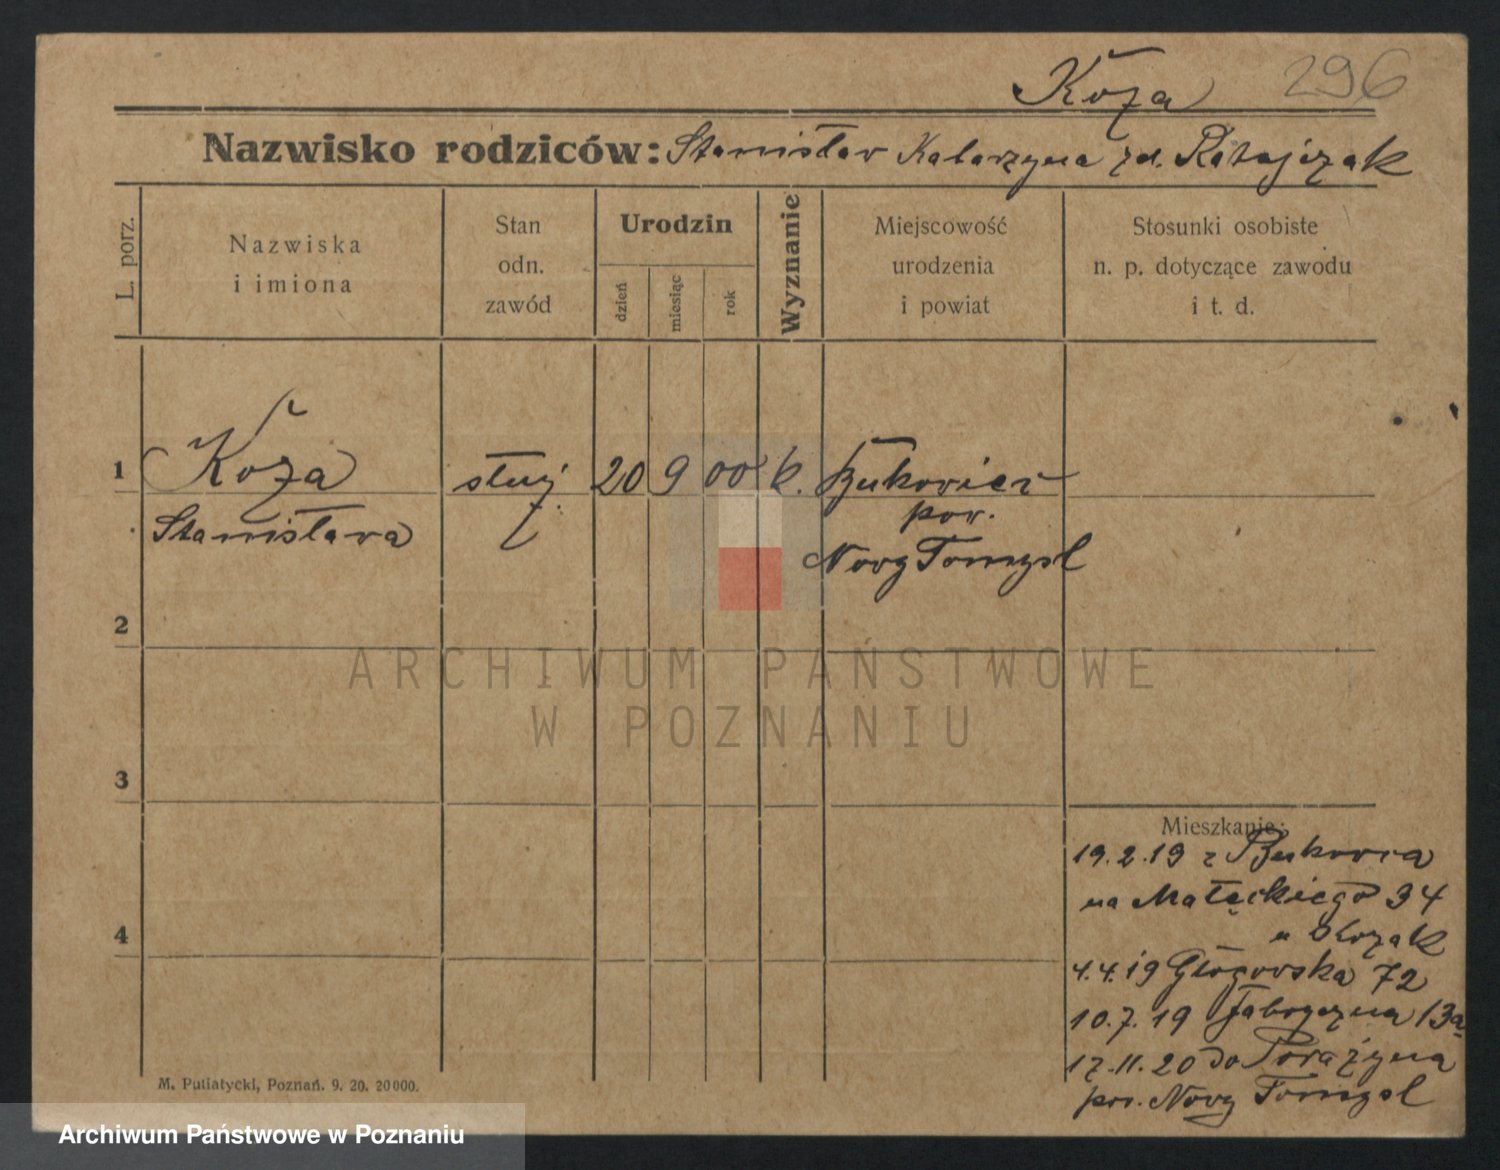 Koza 296
Nazwisko rodziców: Stanisław Katarzyna zd. Ratajczak
L. porz.
Nazwiska
i imiona
Stan
odn.
zawód
Urodzin
dzień
miesiąc
rok
Wyznanie
Miejscowość
urodzenia
i powiat
Stosunki osobiste
n. p. dotyczące zawodu
i t. d.
1 Koza służ. 20 9 00 k. Bukowiec
Stanisława pow.
Nowy Tomysl
2
ARCHIWUM PAŃSTWOWE
W POZNANIU
3
Mieszkanie:
19.2.19 z Bukowca
na Małeckiego 34
4
4.4.19 Głogowska 72
10.7.19 Fabryczna 13a
17.11.20 do Porażyna
pow. Nowy Tomysl
M. Putiatycki, Poznań. 9. 20. 20000.
Archiwum Państwowe w Poznaniu